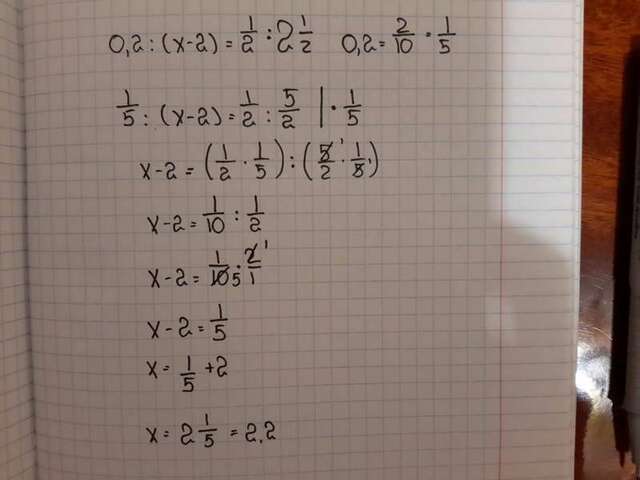 0,2 : (x-2) = 1/2 : 2 1/2   0,2 = 2/10 = 1/5
1/5 : (x-2) = 1/2 : 5/2 | · 1/5
x-2 = (1/2 · 1/5) : (5/2 · 1/5)
x-2 = 1/10 : 1/2
x-2 = 1/10 5 · 2/1 1
x-2 = 1/5
x = 1/5 + 2
x = 2 1/5 = 2,2